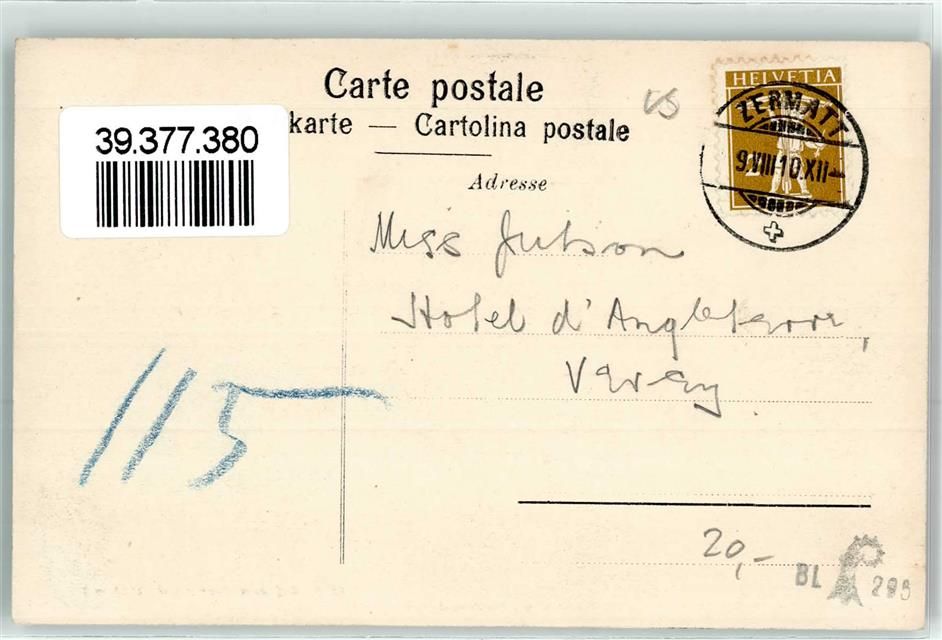 Carte postale
39.377.380
karte — Cartolina postale
Adresse
VS
HELVETIA
ZERMATT
9.VIII.10.XII-
Miss Jutson
Hotel d'Angleterre,
Vevey
115
20,-
BL 289